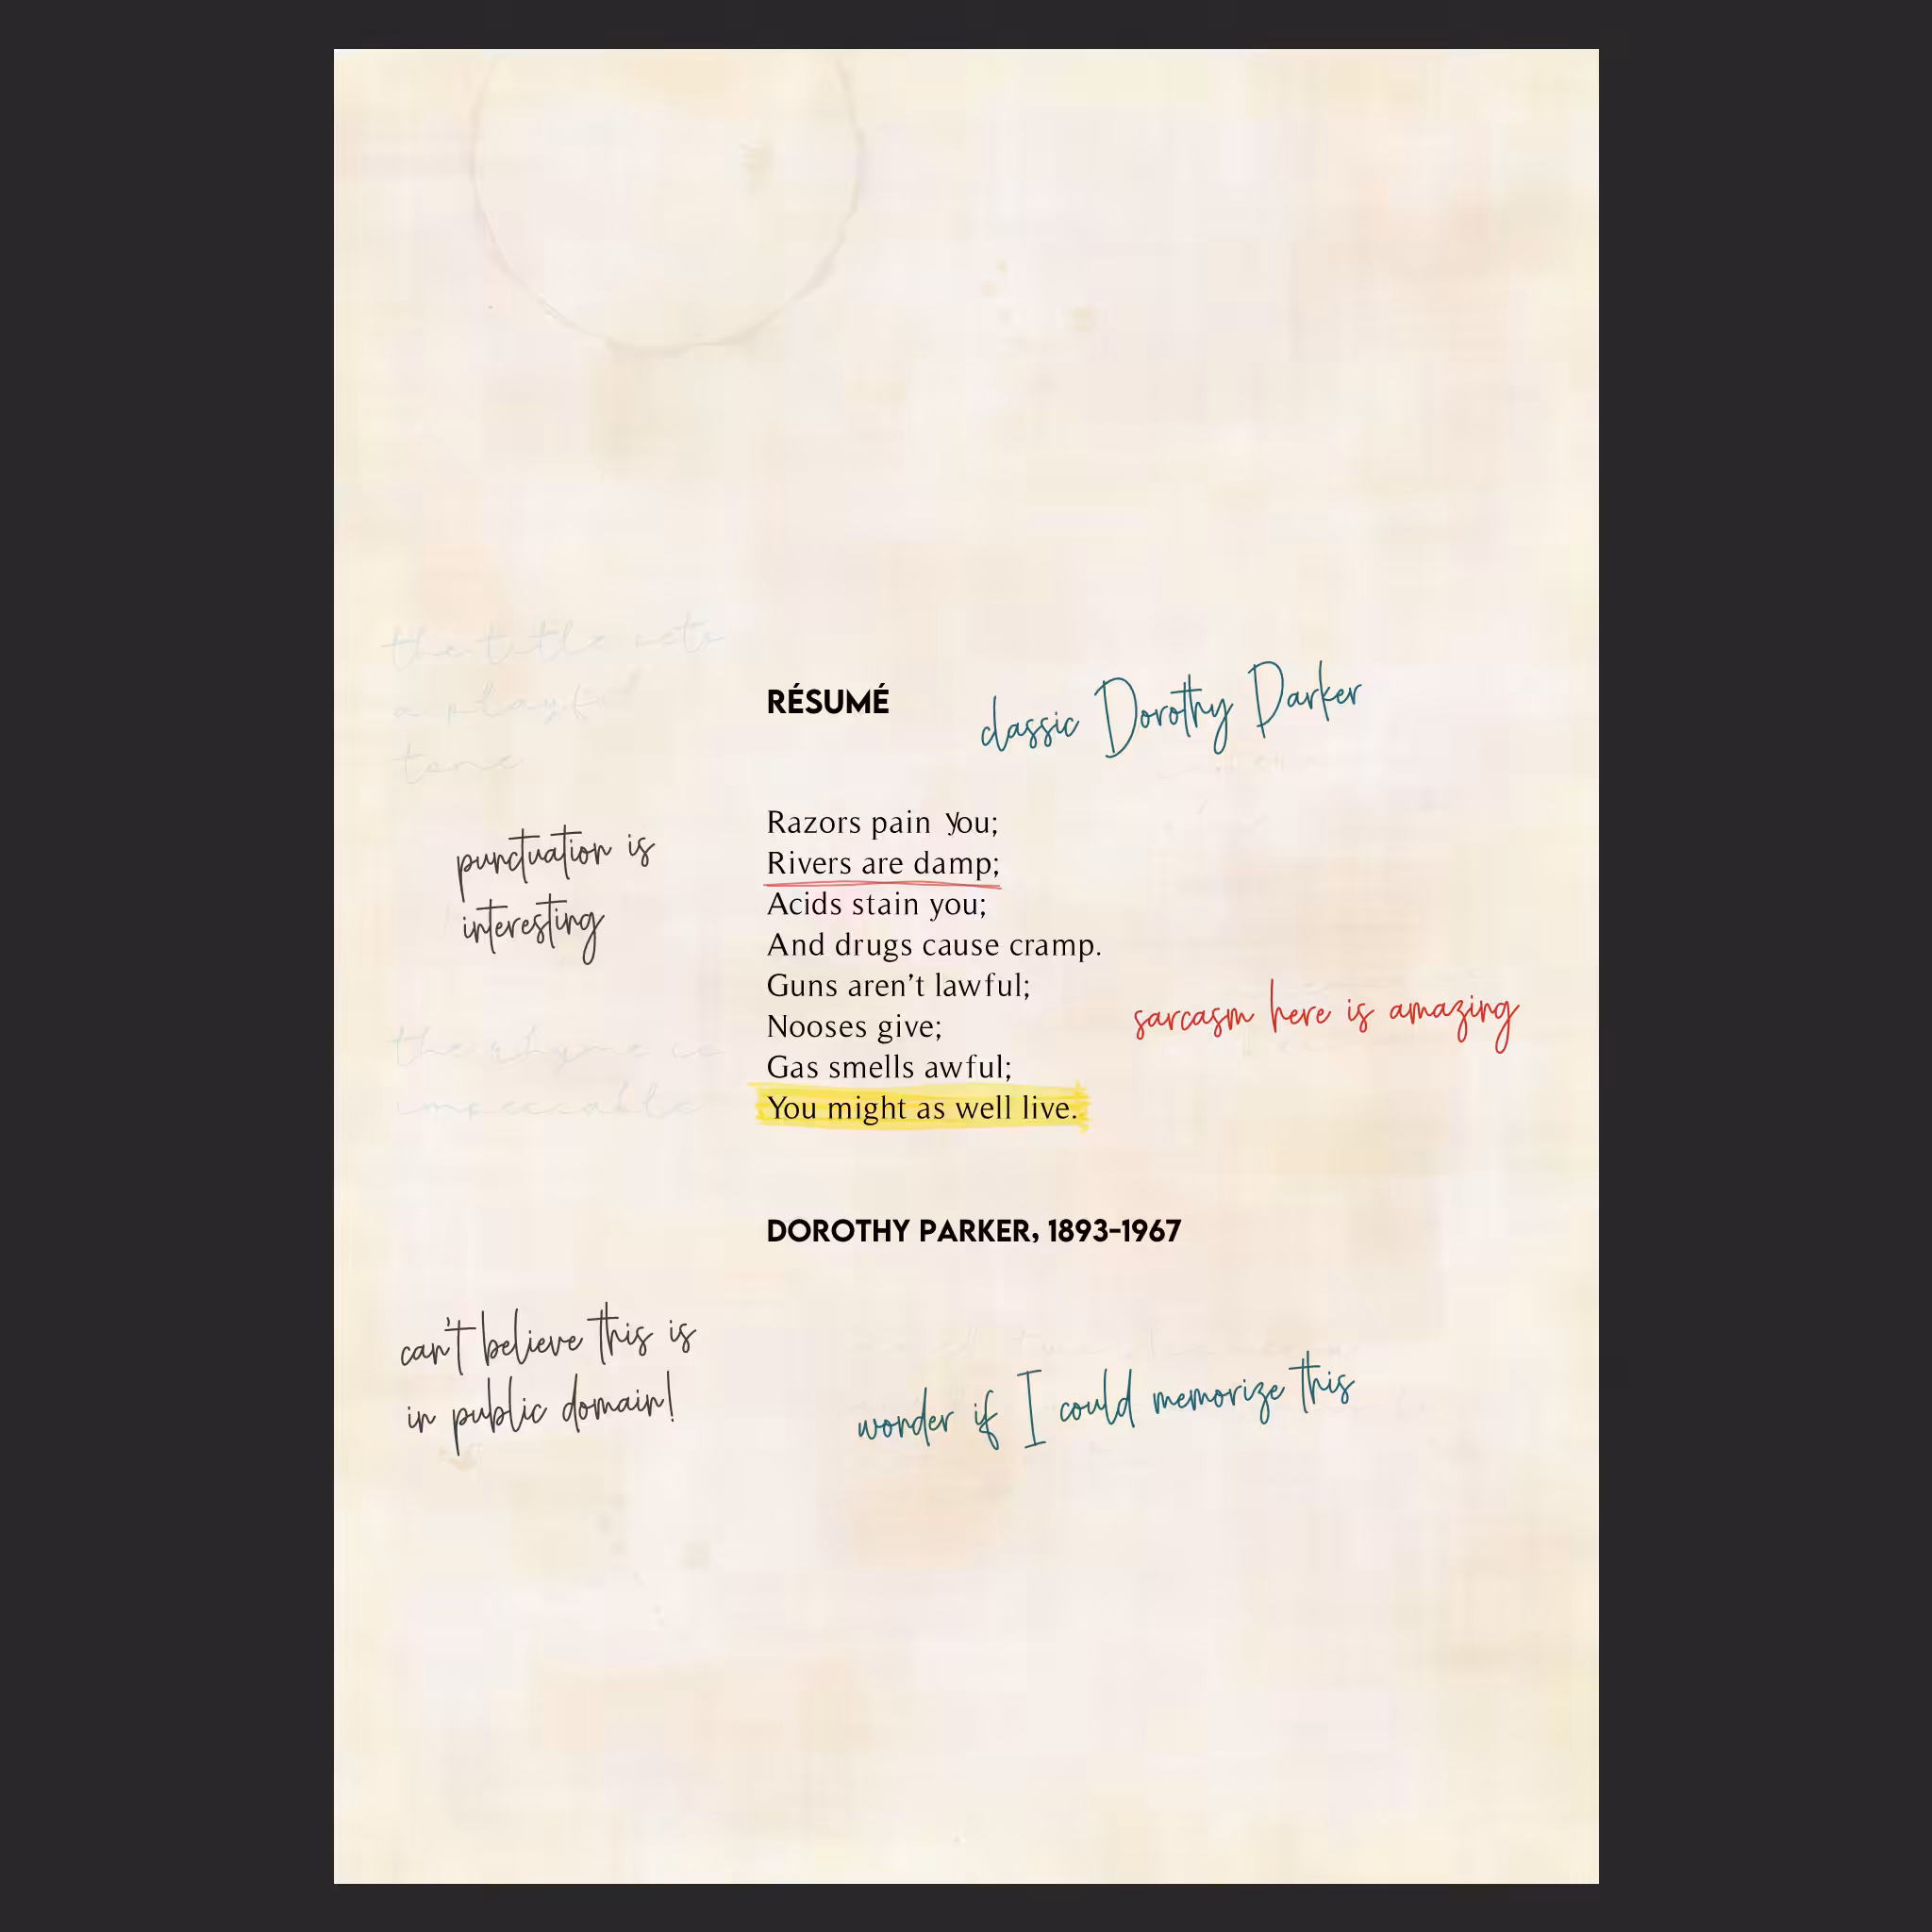 the title sets
a playf
tone
RÉSUMÉ
classic Dorothy Parker
Razors pain you;
Rivers are damp;
Acids stain you;
And drugs cause cramp.
Guns aren’t lawful;
Nooses give;
Gas smells awful;
You might as well live.
punctuation is
interesting
sarcasm here is amazing
the rhyme is
impeccable
DOROTHY PARKER, 1893–1967
can't believe this is
in public domain!
wonder if I could memorize this